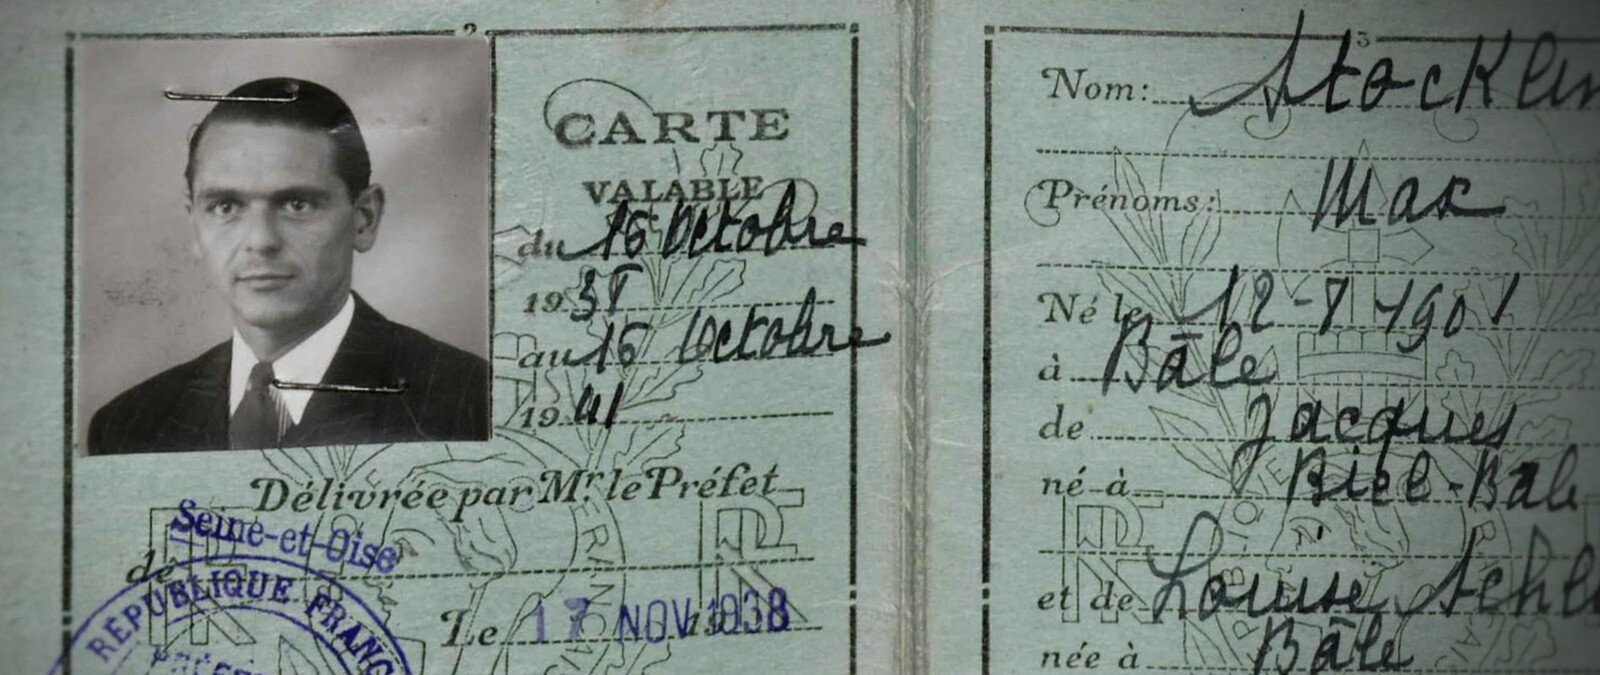 2
CARTE
VALABLE
du 16 Octobre
1938
au 16 Octobre
1941
Délivrée par Mr. le Préfet
de Seine-et-Oise
RÉPUBLIQUE FRANÇ
Le 17 NOV 1938
3
Nom: Stocklin
Prénoms: Max
Né le 12-8 1901
à Bâle
de Jacques
né à Biel-Bâle
et de Louise
née à Bâle